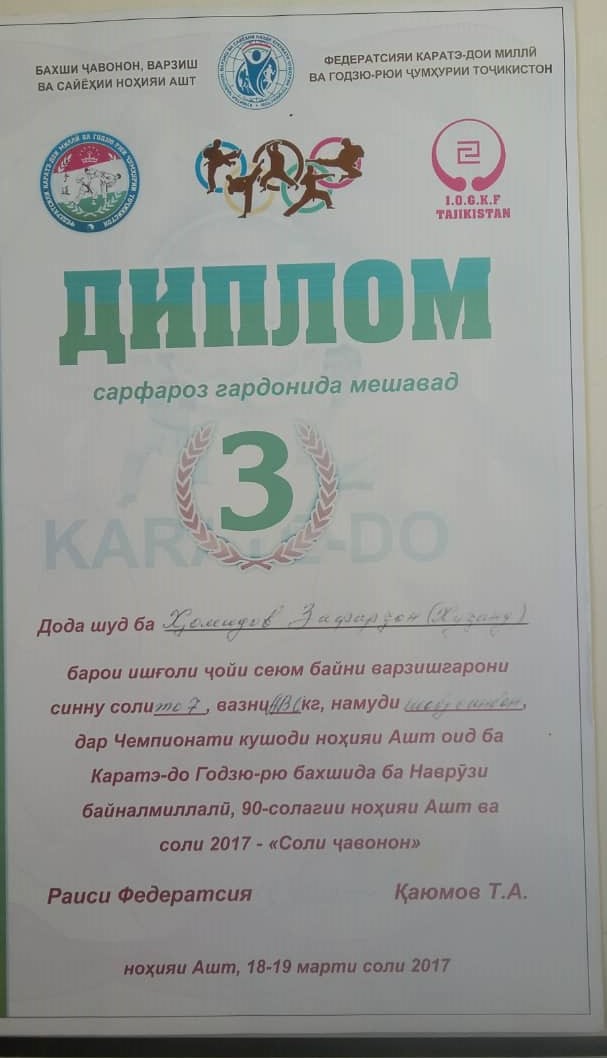 БАХШИ ҶАВОНОН, ВАРЗИШ
ВА САЙЁҲИИ НОҲИЯИ АШТ
ФЕДЕРАТСИЯИ КАРАТЭ-ДОИ МИЛЛӢ
ВА ГОДЗЮ-РЮИ ҶУМҲУРИИ ТОҶИКИСТОН
I.O.G.K.F
TAJIKISTAN
ДИПЛОМ
сарфароз гардонида мешавад
3
KARATE-DO
Дода шуд ба Ҳомидов Зафарҷон (Хуҷанд)
барои ишғоли ҷойи сеюм байни варзишгарони
синну соли то 7, вазни АВС кг, намуди
дар Чемпионати кушоди ноҳияи Ашт оид ба
Каратэ-до Годзю-рю бахшида ба Наврӯзи
байналмиллалӣ, 90-солагии ноҳияи Ашт ва
соли 2017 - «Соли ҷавонон»
Раиси Федератсия Қаюмов Т.А.
ноҳияи Ашт, 18-19 марти соли 2017